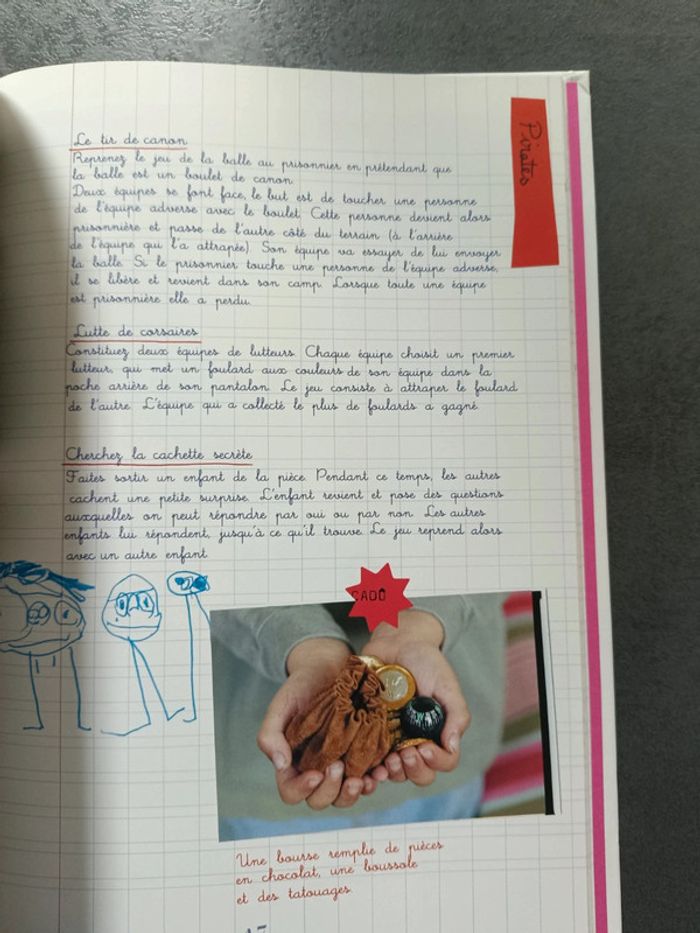 Pirates
Le tir de canon
Reprenez le jeu de la balle au prisonnier en prétendant que
la balle est un boulet de canon.
Deux équipes se font face, le but est de toucher une personne
de l'équipe adverse avec le boulet. Cette personne devient alors
prisonnière et passe de l'autre côté du terrain (à l'arrière
de l'équipe qui l'a attrapée). Son équipe va essayer de lui envoyer
la balle. Si le prisonnier touche une personne de l'équipe adverse,
il se libère et revient dans son camp. Lorsque toute une équipe
est prisonnière elle a perdu.
Lutte de corsaires
Constituez deux équipes de lutteurs. Chaque équipe choisit un premier
lutteur, qui met un foulard aux couleurs de son équipe dans la
poche arrière de son pantalon. Le jeu consiste à attraper le foulard
de l'autre. L'équipe qui a collecté le plus de foulards a gagné.
Cherchez la cachette secrète
Faites sortir un enfant de la pièce. Pendant ce temps, les autres
cachent une petite surprise. L'enfant revient et pose des questions
auxquelles on peut répondre par oui ou par non. Les autres
enfants lui répondent, jusqu'à ce qu'il trouve. Le jeu reprend alors
avec un autre enfant.
CADÔ
Une bourse remplie de pièces
en chocolat, une boussole
et des tatouages.